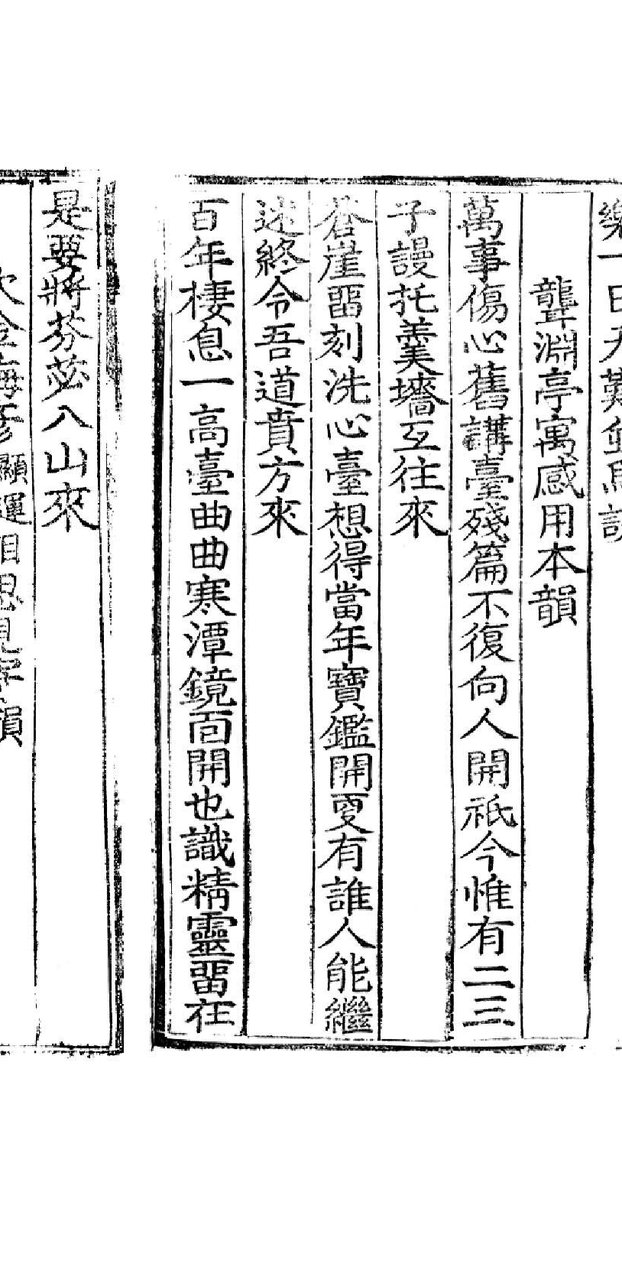 聾淵亭寓感用本韻
萬事傷心舊講臺殘篇不復向人開祇今惟有二三
子謾托羹墻互往來
蒼崖畱刻洗心臺想得當年寶鑑開更有誰人能繼
述終令吾道賁方來
百年棲息一高臺曲曲寒潭鏡面開也識精靈畱在
是要將芬苾入山來
顯運相思見寄韻